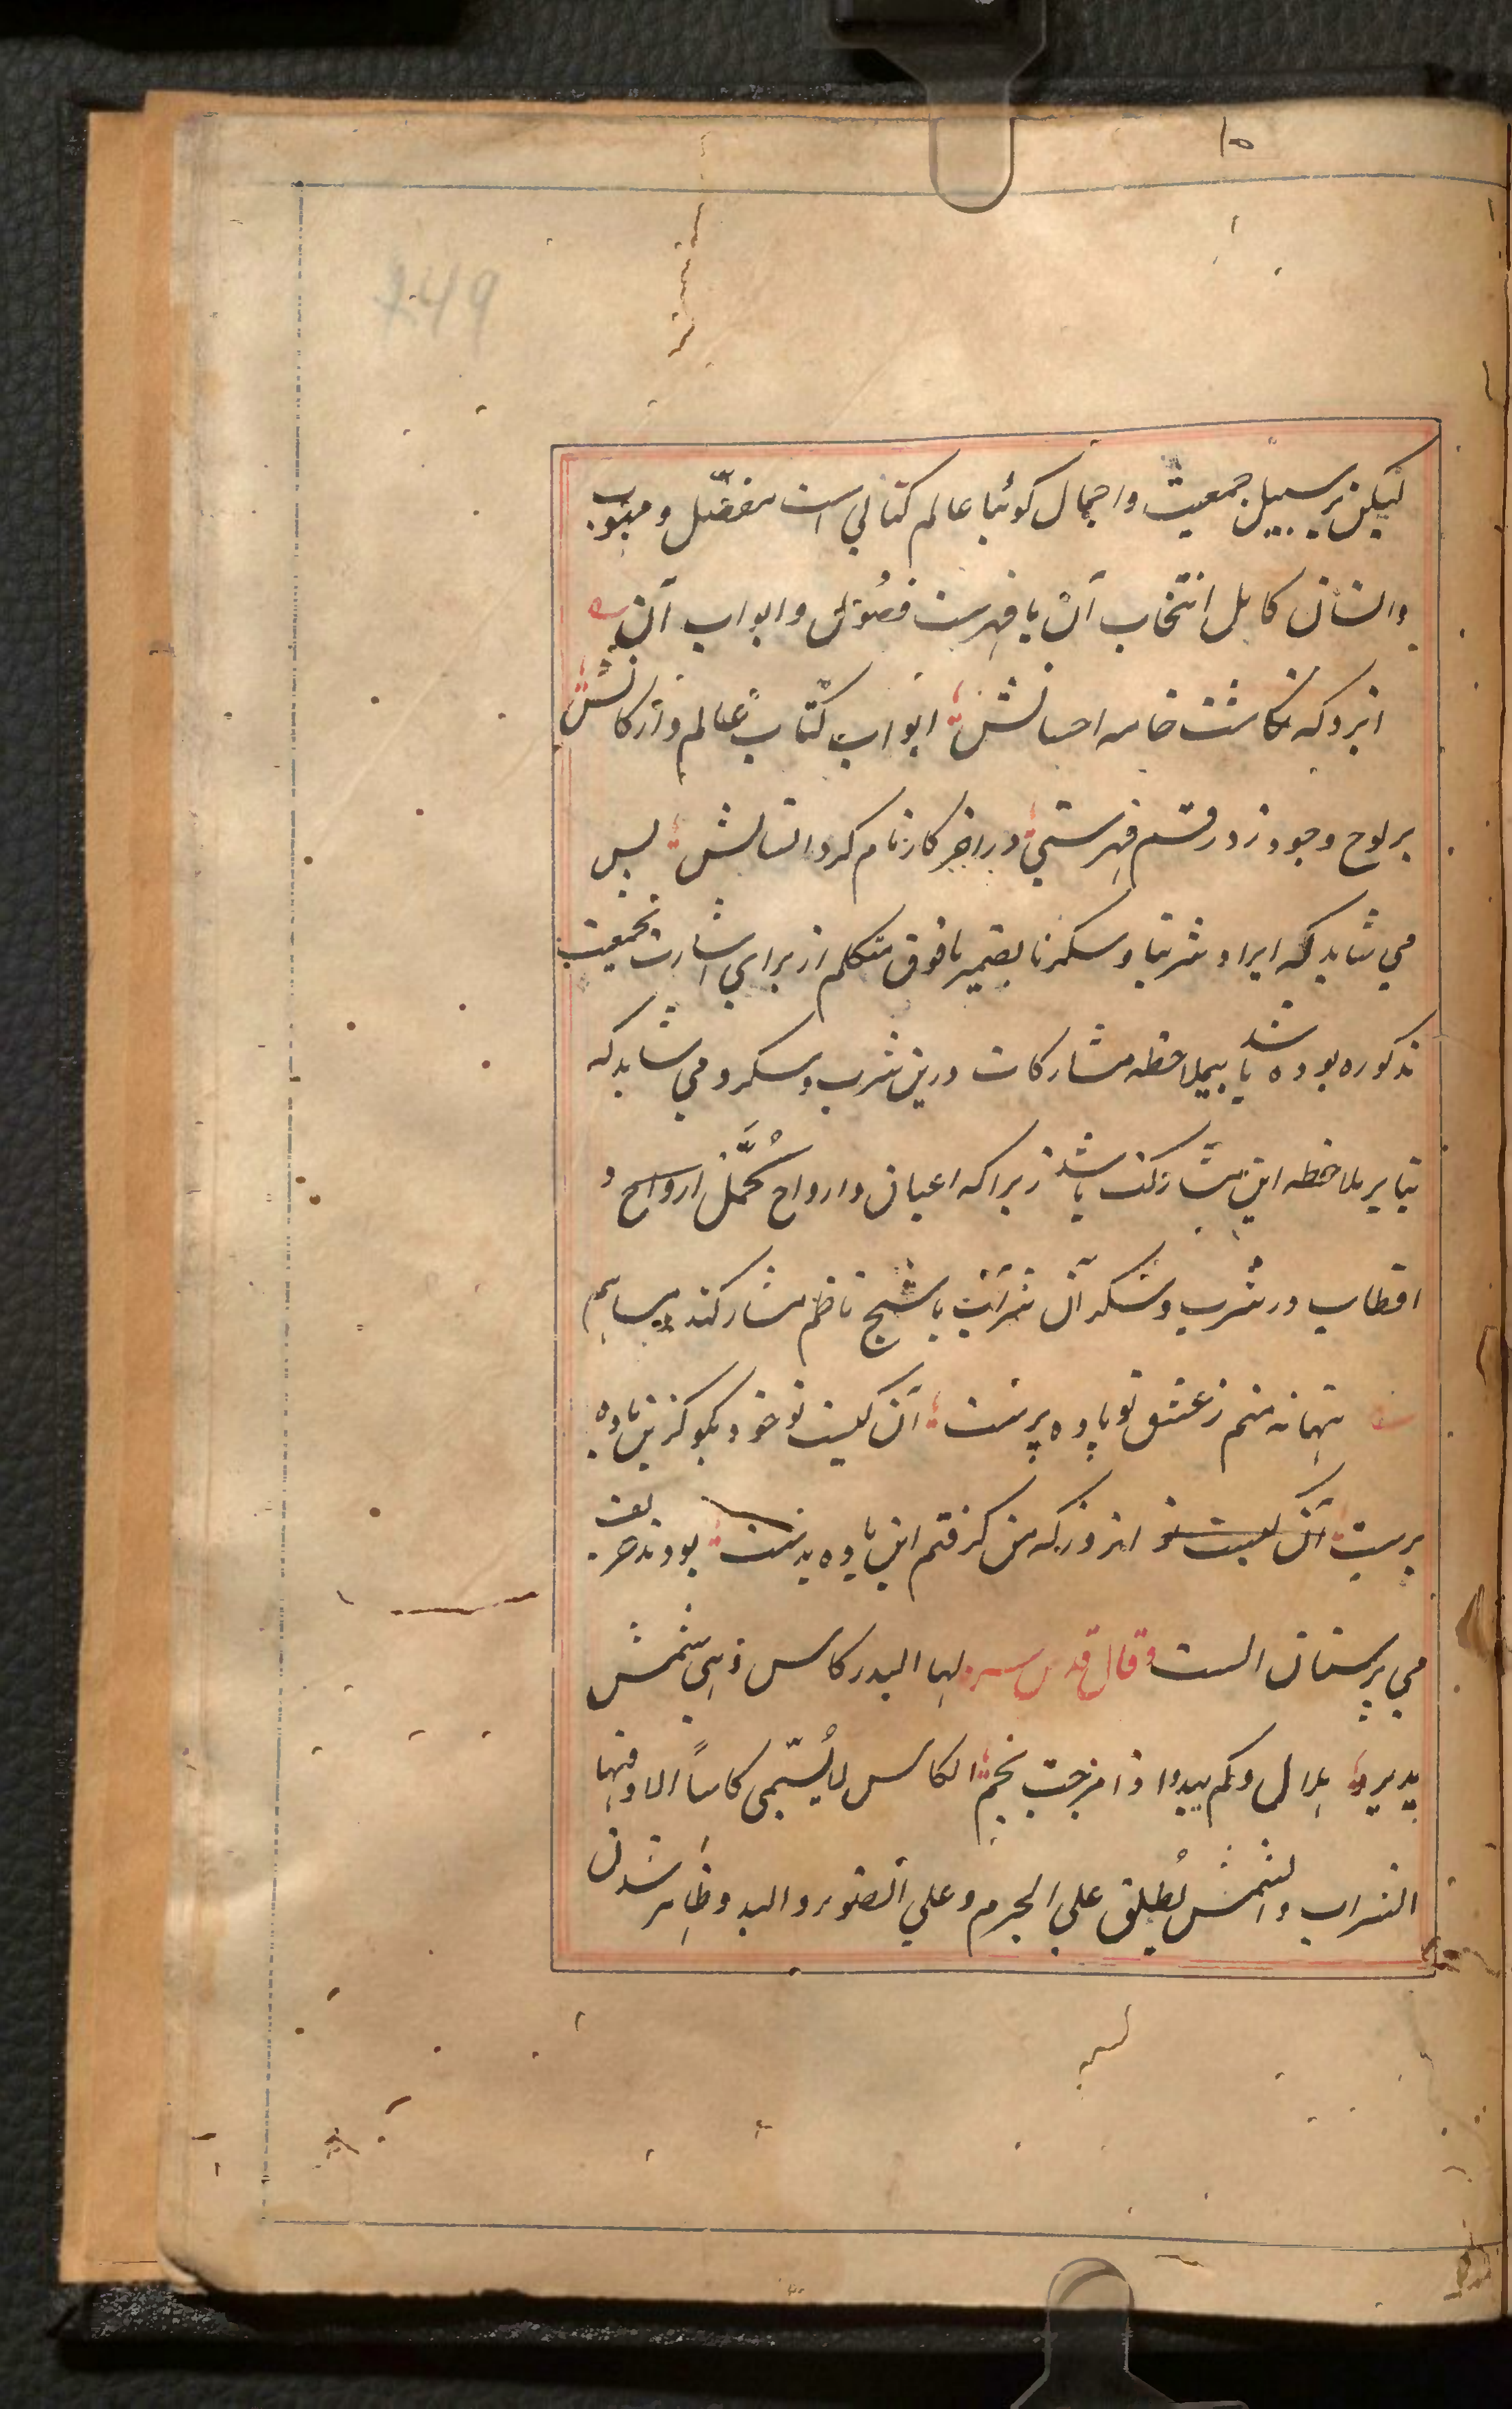 ۱۵
249
لیکن بر سبیل جمعیت و اجمال کوئیا عالم کتابی است مفصّل و مبوب
و انسان کامل انتخاب آن یا فهرست فصول و ابواب آن
ایزد که نکاشت خامه احسانش ابواب کتاب عالم و ارکانش
بر لوح وجود زد رقم فهرستی در اخر کار نام کرد انسانش پس
می شاید که ایراد شربنا و سکرنا بضمیر مافوق متکلم از برای اشارت بجمعیت
مذکوره بوده باشد یا بملاحظه مشارکات درین شرب و سکر و می شاید که
بنا بر ملاحظه این مشارکت باشد زیرا که اعیان و ارواح کُمَّل ارواح و
اقطاب در شرب و سکر آن شراب با شیخ ناظم مشارکند و مساهم
تنها نه منم ز عشق تو باده پرست آن کیست تو خود بکو کزین باده
پرست آن کیست تو انروز که من کرفتم این باده بدست بودند حریف
می پرستان الست و قال قدس سره لها البدر کاس و هی شمس
یدیرها هلال و کم یبدو اذا مزجت نجم الکاس لا یُسَمّی کاساً الا و فیها
الشراب و الشمس یُطلق علی الجرم و علی الضوء و البدو ظاهر شدن